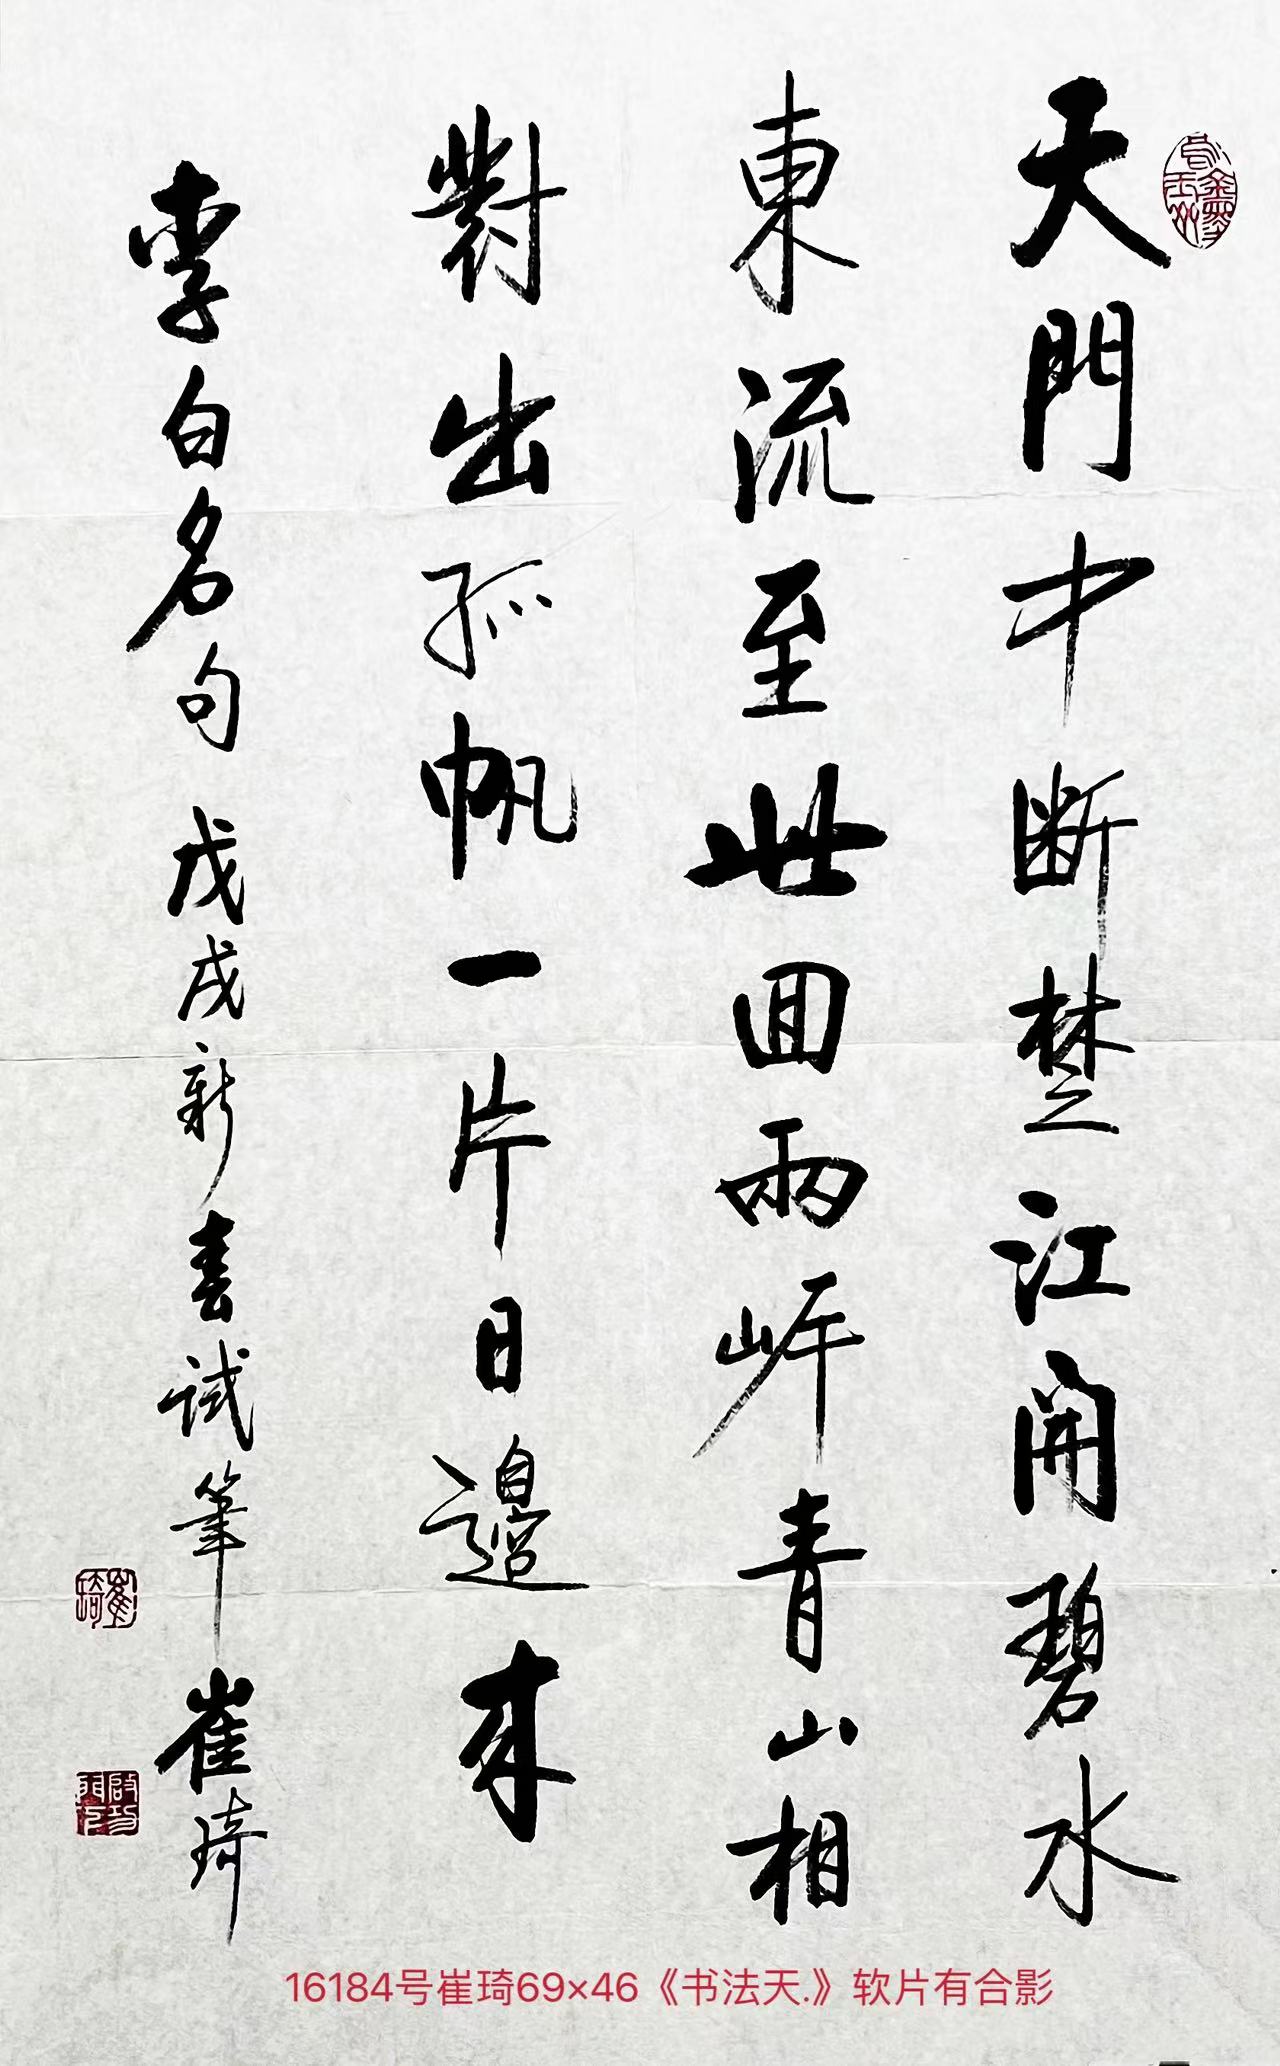 天門中断楚江開碧水
東流至此囬兩岸青山相
對出孤帆一片日邊來
李白名句 戊戌新春试筆 崔琦
崔琦
啟功
16184号崔琦69×46《书法天.》软片有合影